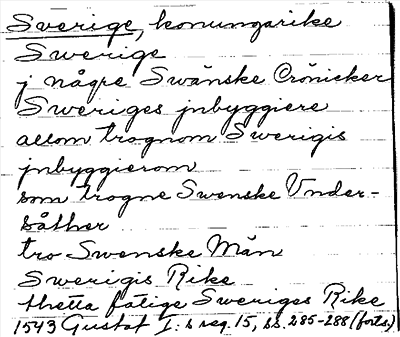 Sverige, konungarike
Swerige
j någre Swänske Crönicker
Sweriges jnbyggiere
allom trognom Swerigis
jnbyggierom
som trogne Swenske Vnder-
såther
tro Swenske Män
Swerigis Rike
thetta fatige Sweriges Rike
1543 Gustaf I: s reg. 15, ss. 285-288 (forts.)